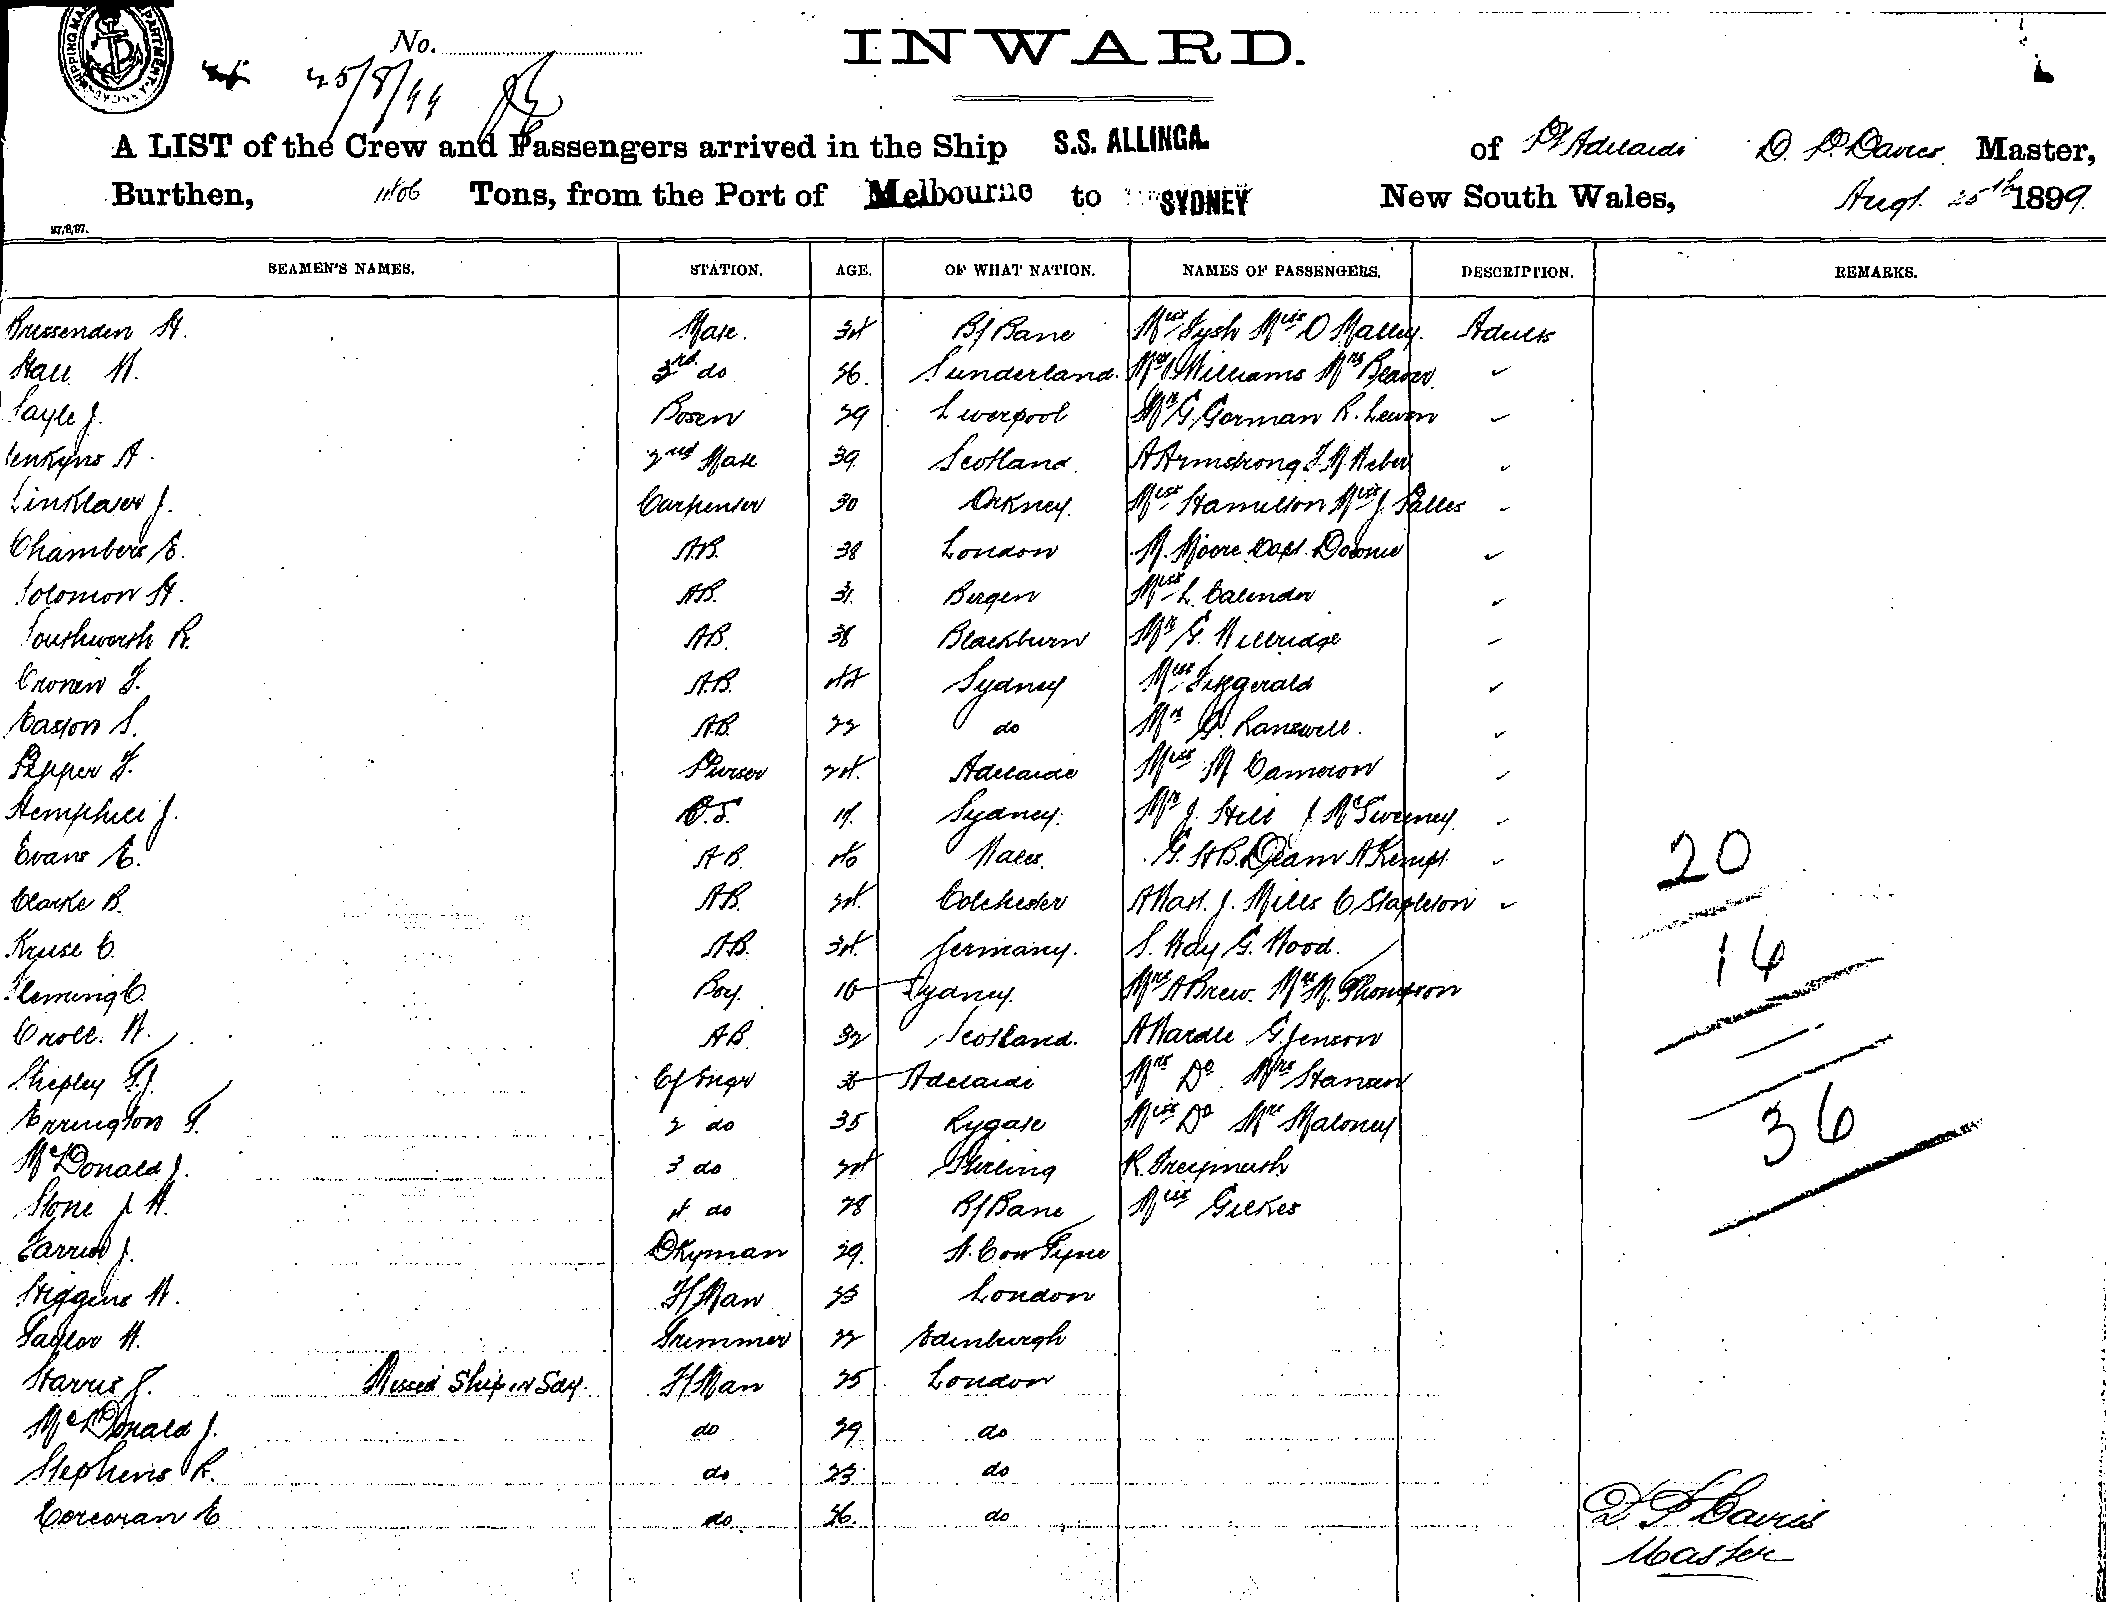 No.
INWARD.
25/8/99
A LIST of the Crew and Passengers arrived in the Ship S.S. ALLINGA. of Pt Adelaide D. P. Davies Master,
Burthen, Tons, from the Port of Melbourne to SYDNEY New South Wales, Augt. 25th 1899.
27/8/97.
SEAMEN'S NAMES. STATION. AGE. OF WHAT NATION. NAMES OF PASSENGERS. DESCRIPTION. REMARKS.
Bressenden H. Mate. 34 Bf Bane Miss Tysh Miss O Malley. Adults
Hall W. 3rd do 26. Sunderland. Williams Mrs Beaver
Sayle J. Bosen 29 Liverpool Mr G German R. Lewin
Jenkyns A. 2nd Mate 39 Scotland. A Armstrong
Linklater J. Carpenter 30 Orkney. Miss Hamilton Miss J.
Chambers E. AB. 38 London M. Moore Capt. Downie
Solomon H. AB. 31. Bergen Miss L. Calinder
Southworth R. AB. 38 Blackburn Mr G. Willridge
Cronin T. A.B. 44 Sydney Miss Fitzgerald
Easton S. AB. 22 do Mr
Pepper T. Purser 24. Adelaide Miss M Cameron
Hemphill J. O.S. Sydney. Mr J. Hill J McSweeney.
Evans E. AB. 40 Wales. G. H B. Deam A Kempt.
Clarke B. AB. 24. Colchester A Hart. J. Mills C Stapleton
Kruse C. AB. 34. Germany. S. Way G. Wood.
Fleming C. Boy. 16 Sydney. Mrs A Brew. Mrs M. Thompson
Croll. W. AB 32 Scotland. A Wardle G Jenson
Shepley F. J. Cf Engr Adelaide Mrs Do. Mrs Hanson
Errington F. 2 do 35 Rygate Miss Do Mrs Maloney
McDonald J. 3 do 24 Stirling R.
Stone J. H. 4 do 28 Bf Bane Miss Gilkes
Farrier J. DKyman 29. N. C on Tyne
Higgins W. F/Man 23 London
Taylor W. Trimmer 22 Edinburgh
Harris J. Missed Ship in Sdy. F/Man 25 London
McDonald J. do 29 do
Stephens R. do 23 do
Corcoran E do 26. do
20
16
36
D P Davies
Master